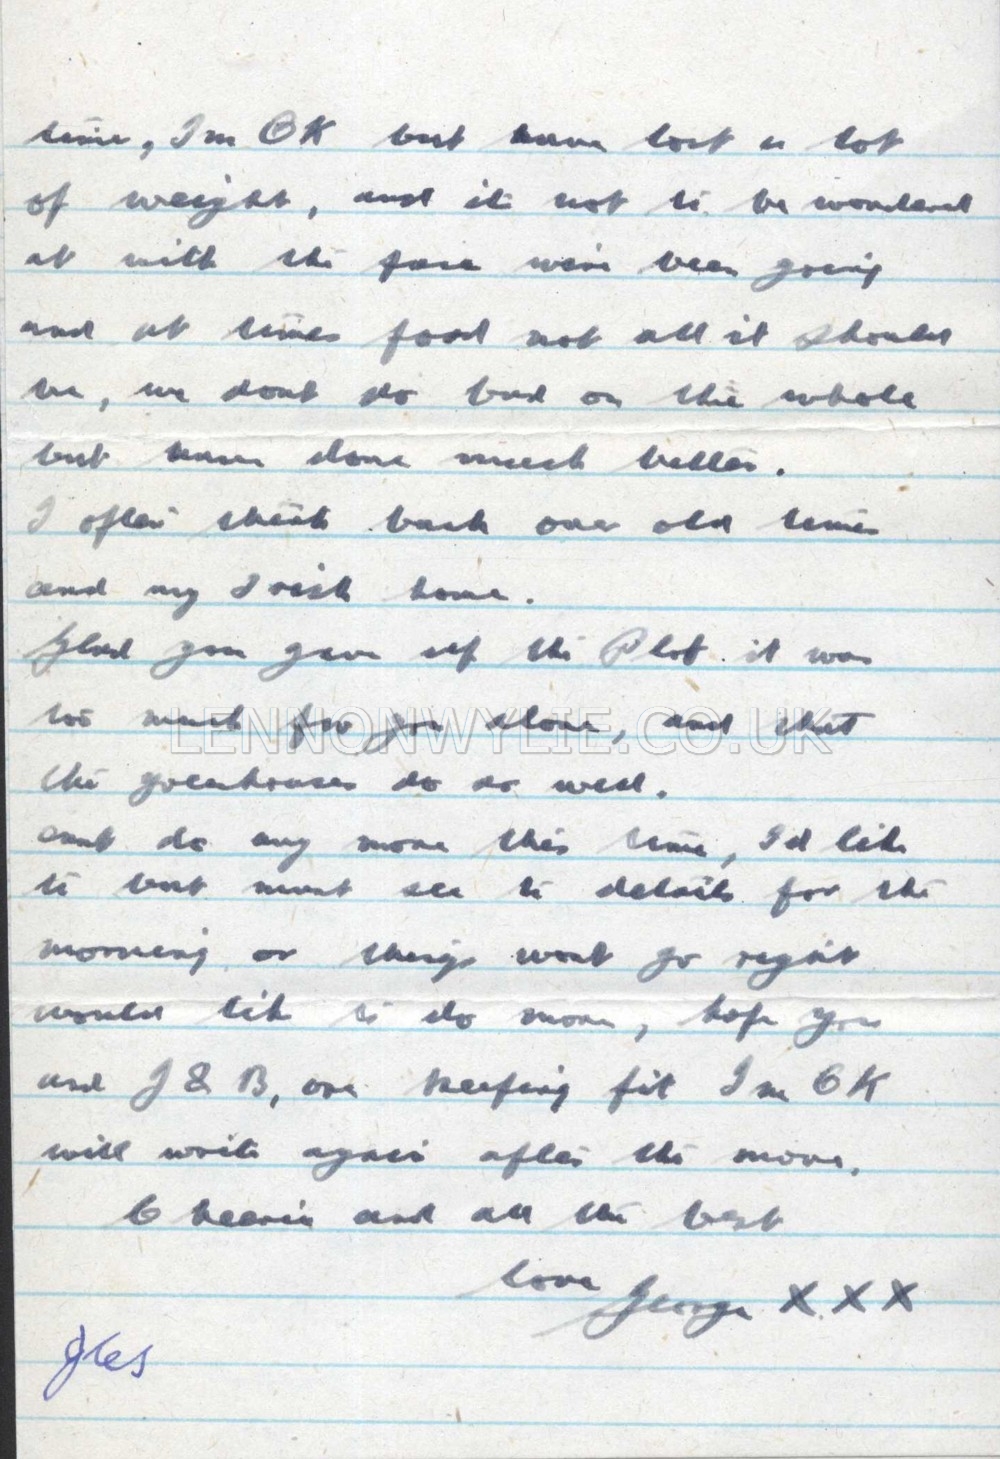 time, Im OK but have lost a lot
of weight, and its not to be wondered
at with the pace weve been going
and at times food not all it should
be, we dont do bad on the whole
but have done much better.
I often think back over old times
and my Irish home.
Glad you gave up the Plot it was
too much for you alone, and that
LENNONWYLIE.CO.UK
the greenhouses do so well.
cant do any more this time, I'd like
to but must see to details for the
morning or things wont go right
would like to do more, hope you
and J & B, are keeping fit Im OK
will write again after the move.
Cheerio and all the best
love George X X X